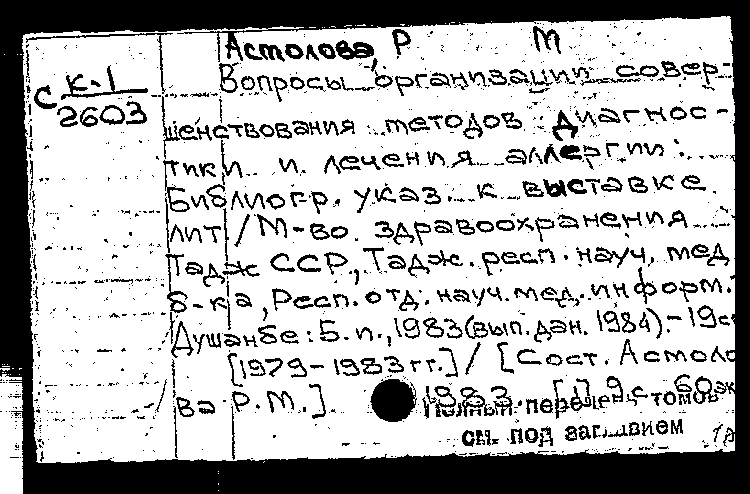 Астолова, Р М
С К-1
2603
Вопросы организации совер-
шенствования методов диагнос-
тики и лечения аллергии:
Библиогр. указ. к выставке
лит. / М-во здравоохранения
Тадж ССР, Тадж. респ. науч. мед
б-ка, Респ. отд. науч. мед. информ.-
Душанбе: Б.и., 1983 (вып. дан. 1984).- 19с
[1979-1983 гг.] / [Сост. Астоло
ва Р.М.] 1983. [1] 9 с. 60 эк
Полный перечень томов
см. под заглавием